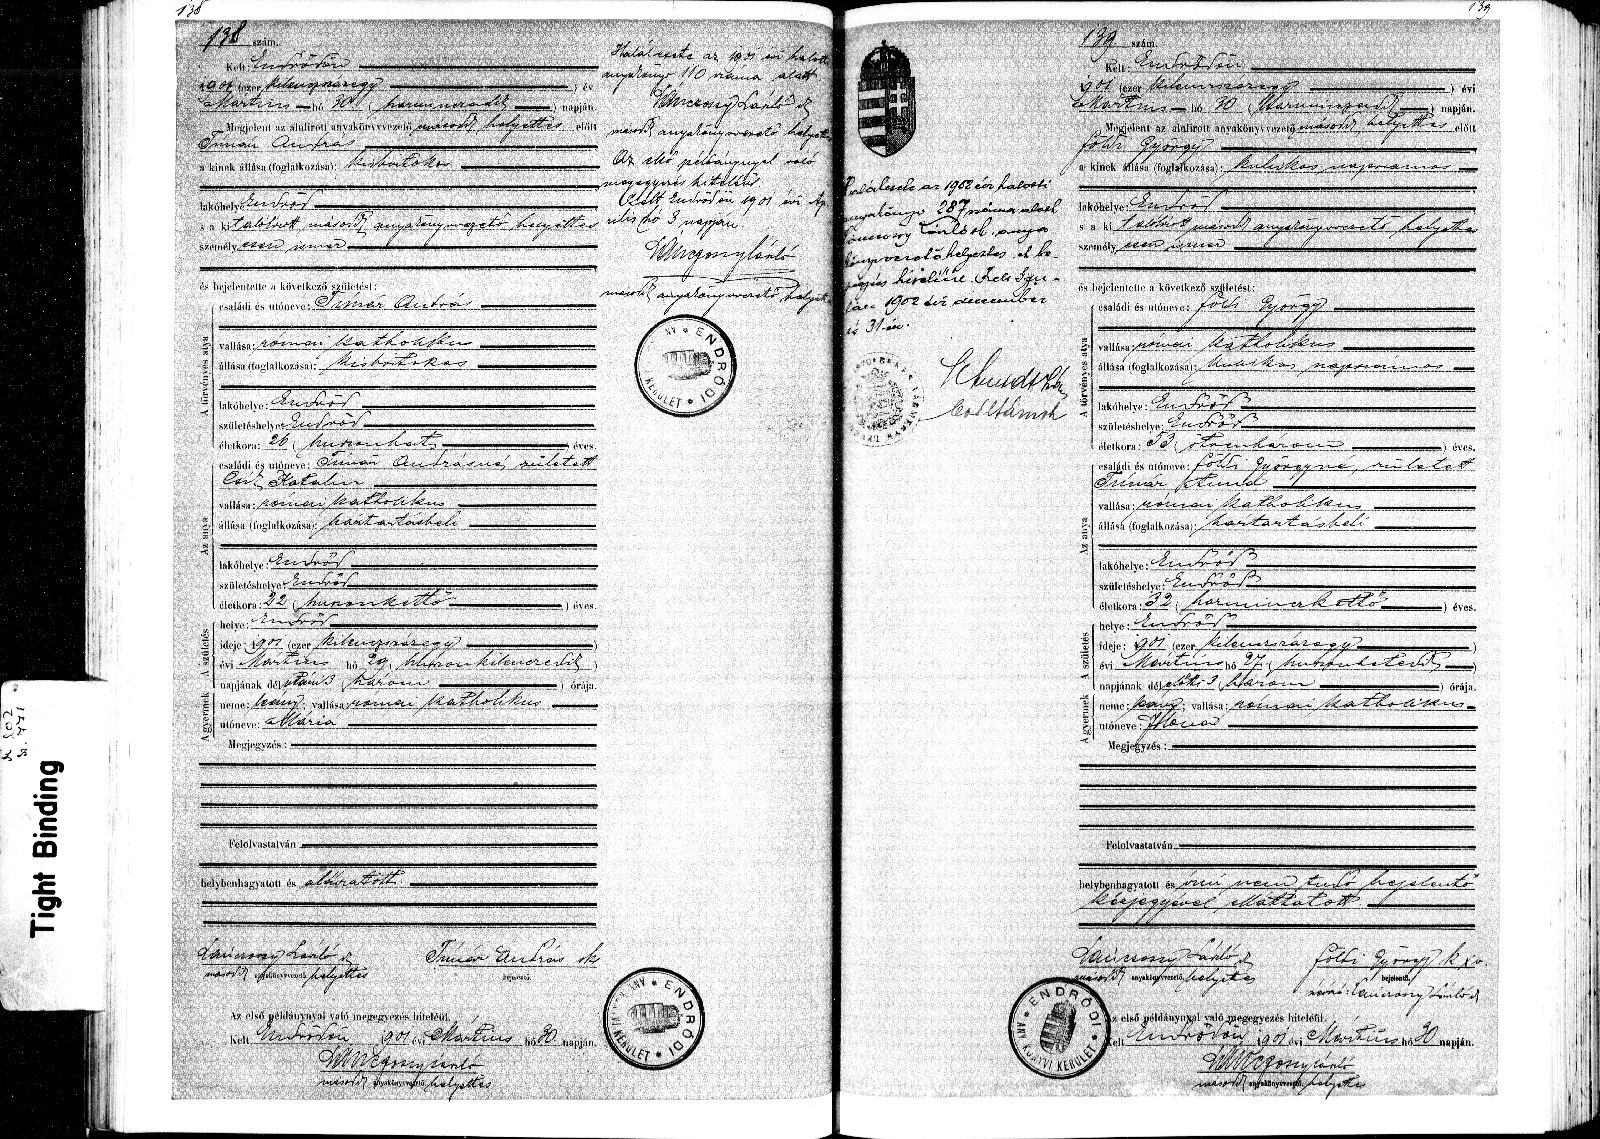 138
138 szám.
Kelt: Endrődön
1901 (ezer kilenczszázegy) év
Martius hó 30 (harminczadik) napján.
Megjelent az alulirott anyakönyvvezető második helyettes előtt
Timár András
a kinek állása (foglalkozása): kisbirtokos
lakóhelye: Endrőd
s a kit alólirott második anyakönyvvezető helyettes
személyesen ismer
és bejelentette a következő születést:
A törvényes atya
családi és utóneve: Timár András
vallása: római katholikus
állása (foglalkozása): kisbirtokos
lakóhelye: Endrőd
születéshelye: Endrőd
életkora: 26 (huszonhat) éves.
Az anya
családi és utóneve: Timár Andrásné, született
Katalin
vallása: római katholikus
állása (foglalkozása): háztartásbeli
lakóhelye: Endrőd
születéshelye: Endrőd
életkora: 22 (huszonkettő) éves.
A születés
helye: Endrőd
ideje: 1901 (ezer kilenczszázegy)
évi Martius hó 29 (huszonkilenczedik)
napjának délután 3 (három) órája.
A gyermek
neme: leány; vallása: római katholikus
utóneve: Mária
Megjegyzés:
Felolvastatván,
helybenhagyatott és aláiratott.
Lánczony László
második anyakönyvvezető helyettes
Timár András sk
bejelentő.
Az első példánynyal való megegyezés hiteléül.
Kelt Endrődön 1901 évi Mártius hó 30 napján.
Lánczony László
második anyakönyvvezető helyettes
Halálesete az 1901 évi halotti
anyakönyv 110 száma alatt
Lánczony László
második anyakönyvvezető helyettes
Az első példánynyal való
megegyezés hiteléül
Kelt Endrődön 1901 évi Áp-
rilis hó 3 napján.
Lánczony László
második anyakönyvvezető helyettes
ENDRŐDI
KERÜLET
ENDRŐDI
KERÜLET
139
139 szám.
Kelt: Endrődön
1901 (ezer kilenczszázegy) évi
Martius hó 30 (harminczadik) napján.
Megjelent az alulirott anyakönyvvezető második helyettes előtt
Földi György
a kinek állása (foglalkozása): kubikos napszámos
lakóhelye: Endrőd
s a kit alólirott második anyakönyvvezető helyettes
személyesen ismer
és bejelentette a következő születést:
A törvényes atya
családi és utóneve: Földi György
vallása: római katholikus
állása (foglalkozása): kubikos napszámos
lakóhelye: Endrőd
születéshelye: Endrőd
életkora: 53 (ötvenhárom) éves.
Az anya
családi és utóneve: Földi Györgyné, született
Timár
vallása: római katholikus
állása (foglalkozása): háztartásbeli
lakóhelye: Endrőd
születéshelye: Endrőd
életkora: 32 (harminczkettő) éves.
A születés
helye: Endrőd
ideje: 1901 (ezer kilenczszázegy)
évi Martius hó 27 (huszonhetedik)
napjának délelőtti 3 (három) órája.
A gyermek
neme: leány; vallása: római katholikus
utóneve: Ilona
Megjegyzés:
Felolvastatván,
helybenhagyatott és írni nem tudó bejelentő
kézjegyével elláttatott
Lánczony László
második anyakönyvvezető helyettes
Földi György k x v.
bejelentő.
Lánczony László
Az első példánynyal való megegyezés hiteléül.
Kelt Endrődön 1901 évi Mártius hó 30 napján.
Lánczony László
második anyakönyvvezető helyettes
Halálesete az 1902 évi halotti
anyakönyv 287 száma alatt
Lánczony László anya-
könyvvezető helyettes
1902 évi december
hó 31-én.
ENDRŐDI
ANYAKÖNYVI KERÜLET
Tight Binding